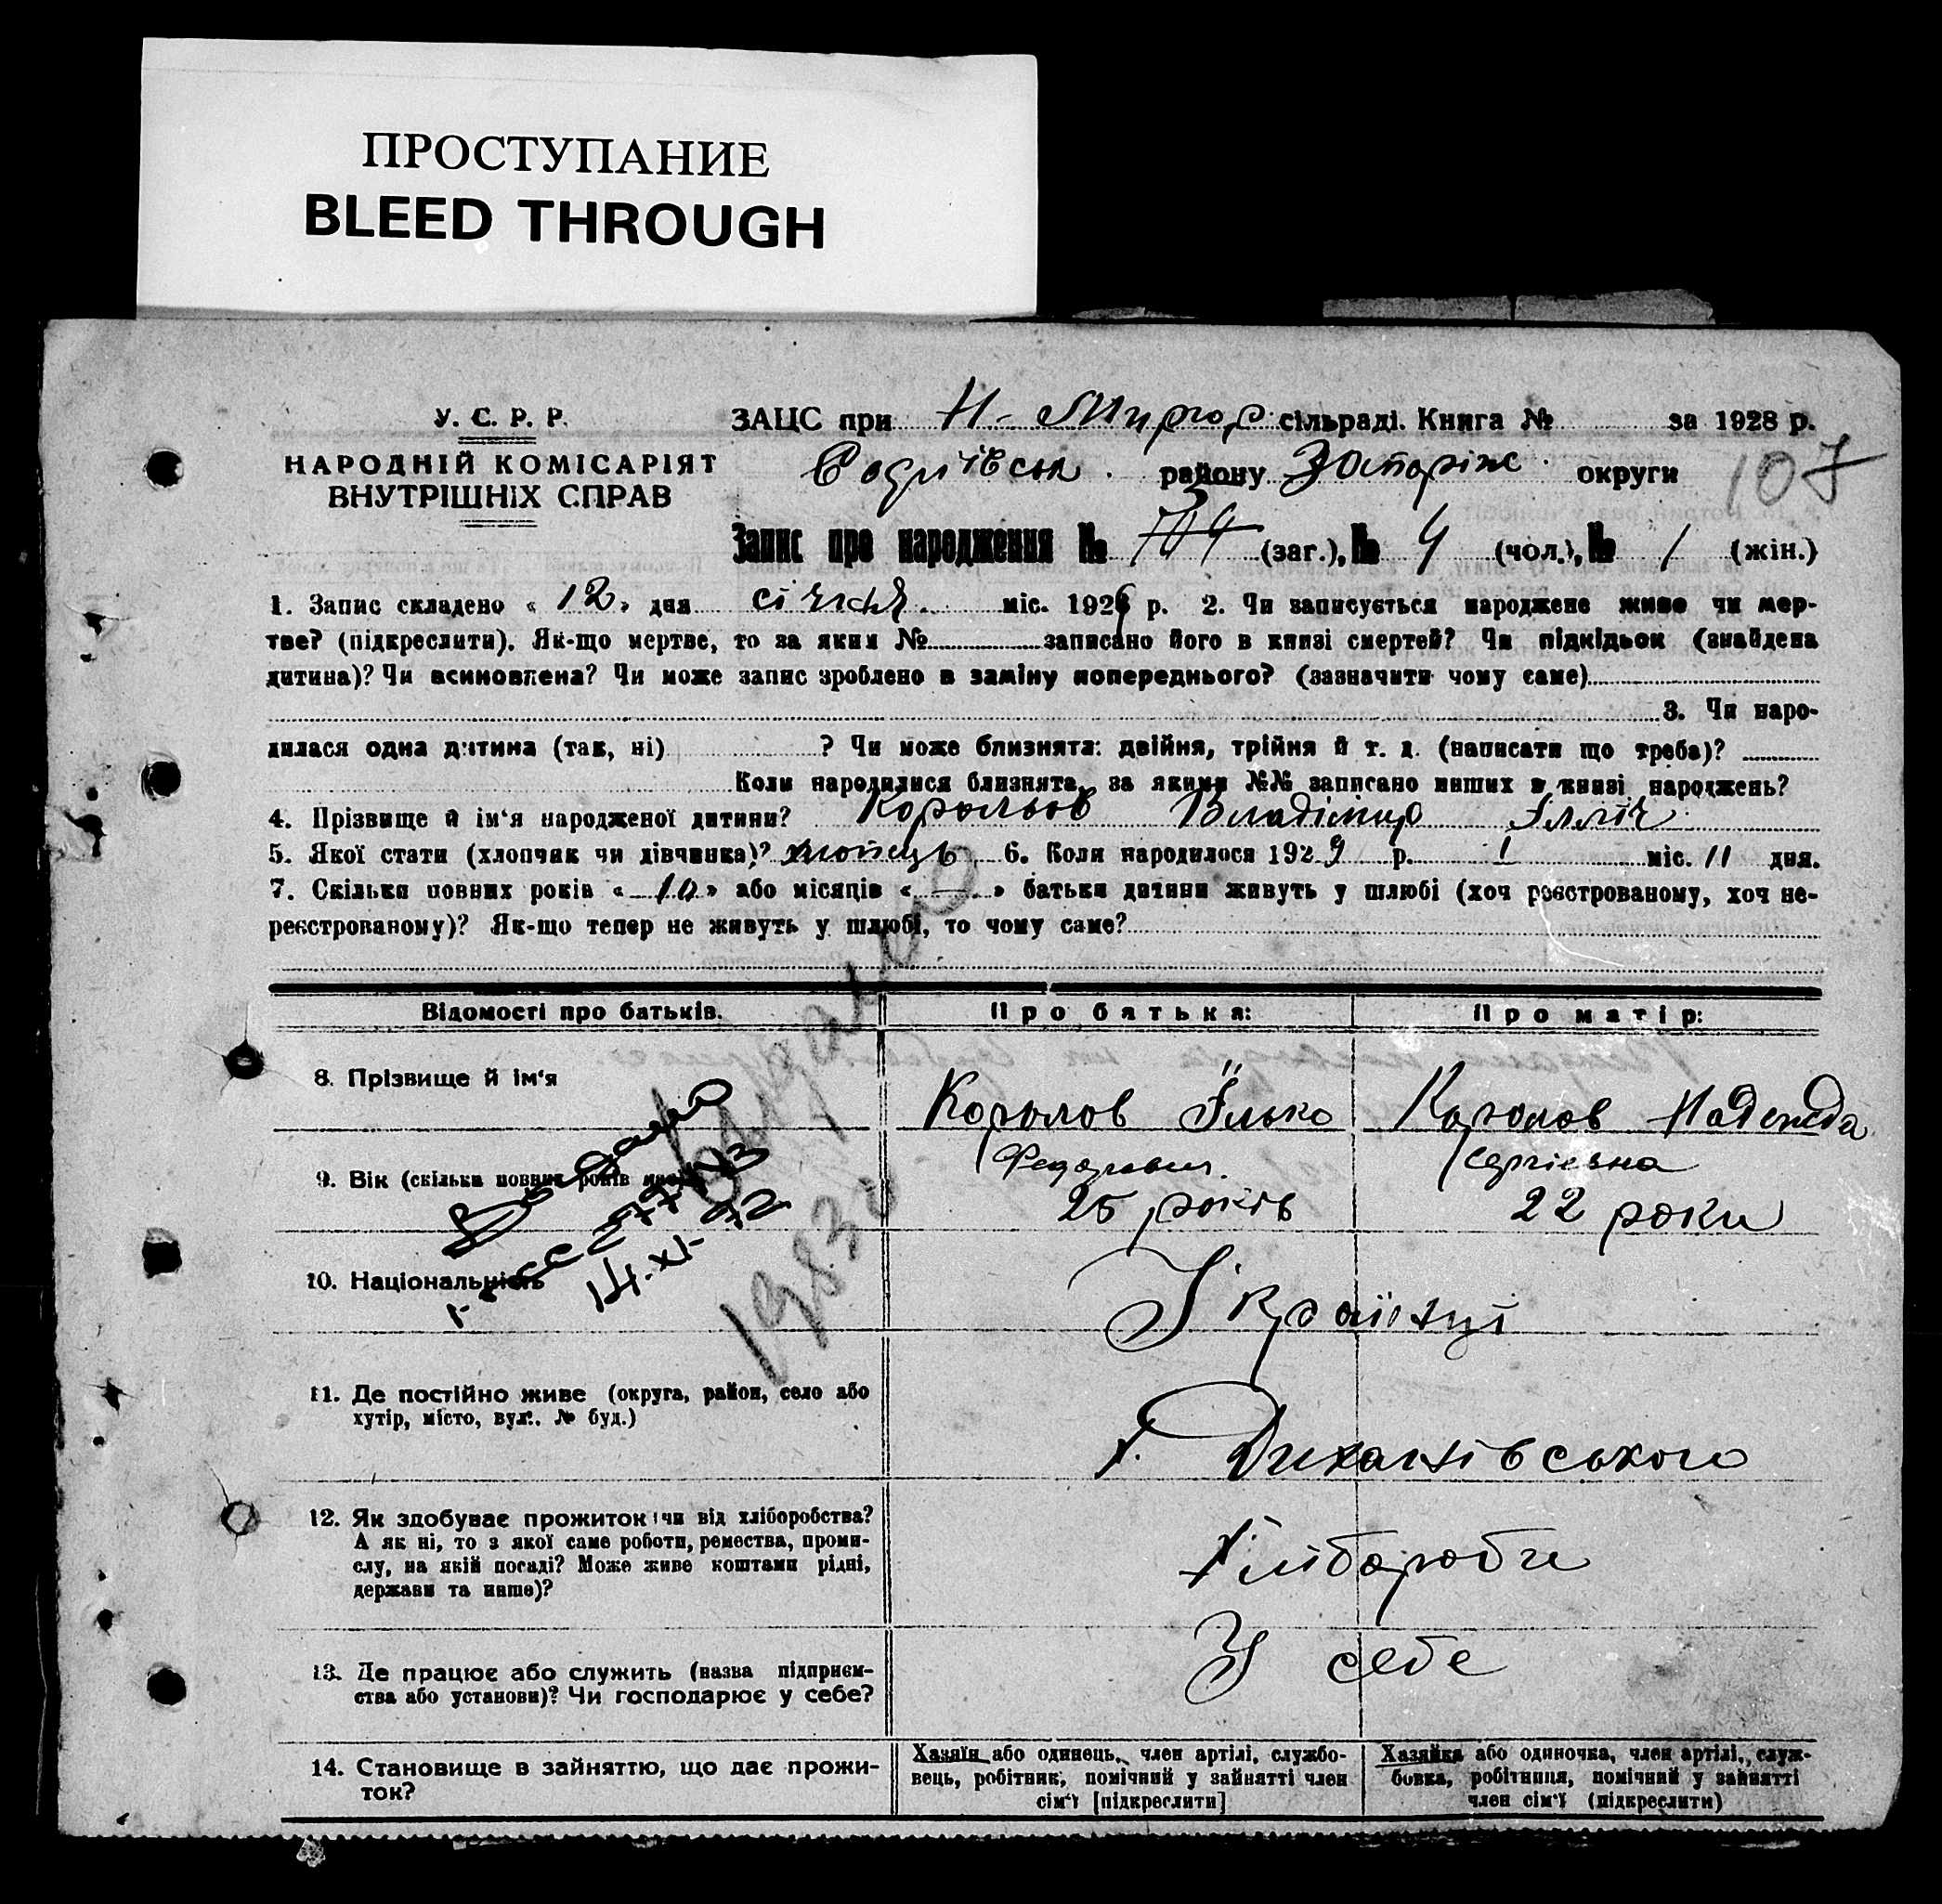 ПРОСТУПАНИЕ
BLEED THROUGH
У. С. Р. Р.
НАРОДНІЙ КОМІСАРІЯТ
ВНУТРІШНІХ СПРАВ
ЗАЦС при Н- сільраді. Книга № за 1928 р.
району Запоріж. округи 107
Запис про народження № (заг.), № 4 (чол.), № 1 (жін.)
1. Запис складено « 12 » дня січня міс. 1929 р. 2. Чи записується народжене живе чи мер-
тве? (підкреслити). Як-що мертве, то за яким № записано його в книзі смертей? Чи підкідьок (знайдена
дитина)? Чи всиновлена? Чи може запис зроблено в заміну попереднього? (зазначити чому саме)
3. Чи наро-
дилася одна дитина (так, ні) ? Чи може близнята: двійня, трійня й т. д. (написати що треба)?
Коли народилися близнята, за якими №№ записано инших в книзі народжень?
4. Прізвище й ім'я народженої дитини? Корольов Владімир Ілліч
5. Якої стати (хлопчик чи дівчинка)? хлопець 6. Коли народилося 1929 р. 1 міс. 11 дня.
7. Скільки повних років « 10 » або місяців « — » батьки дитини живуть у шлюбі (хоч реєстрованому, хоч не-
реєстрованому)? Як-що тепер не живуть у шлюбі, то чому саме?
Відомості про батьків. Про батька: Про матір:
8. Прізвище й ім'я
Королов Ілько Королов Надежда
Федорович Сергієвна
9. Вік (скільки повних років має)
25 років 22 роки
14.XI-
10. Національність
Українці
11. Де постійно живе (округа, район, село або
хутір, місто, вул. № буд.)
х. Диканівського
12. Як здобуває прожиток (чи від хліборобства?
А як ні, то з якої саме роботи, ремества, проми-
слу, на якій посаді? Може живе коштами рідні,
держави та инше)?
Хлібороби
13. Де працює або служить (назва підприєм-
ства або установи)? Чи господарює у себе?
У себе
14. Становище в зайняттю, що дає прожи-
ток?
Хазяїн або одинець, член артілі, службо-
вець, робітник, помічний у зайнятті член
сім'ї [підкреслити]
Хазяйка або одиночка, член артілі, служ-
бовка, робітниця, помічний у зайнятті
член сім'ї (підкреслити)